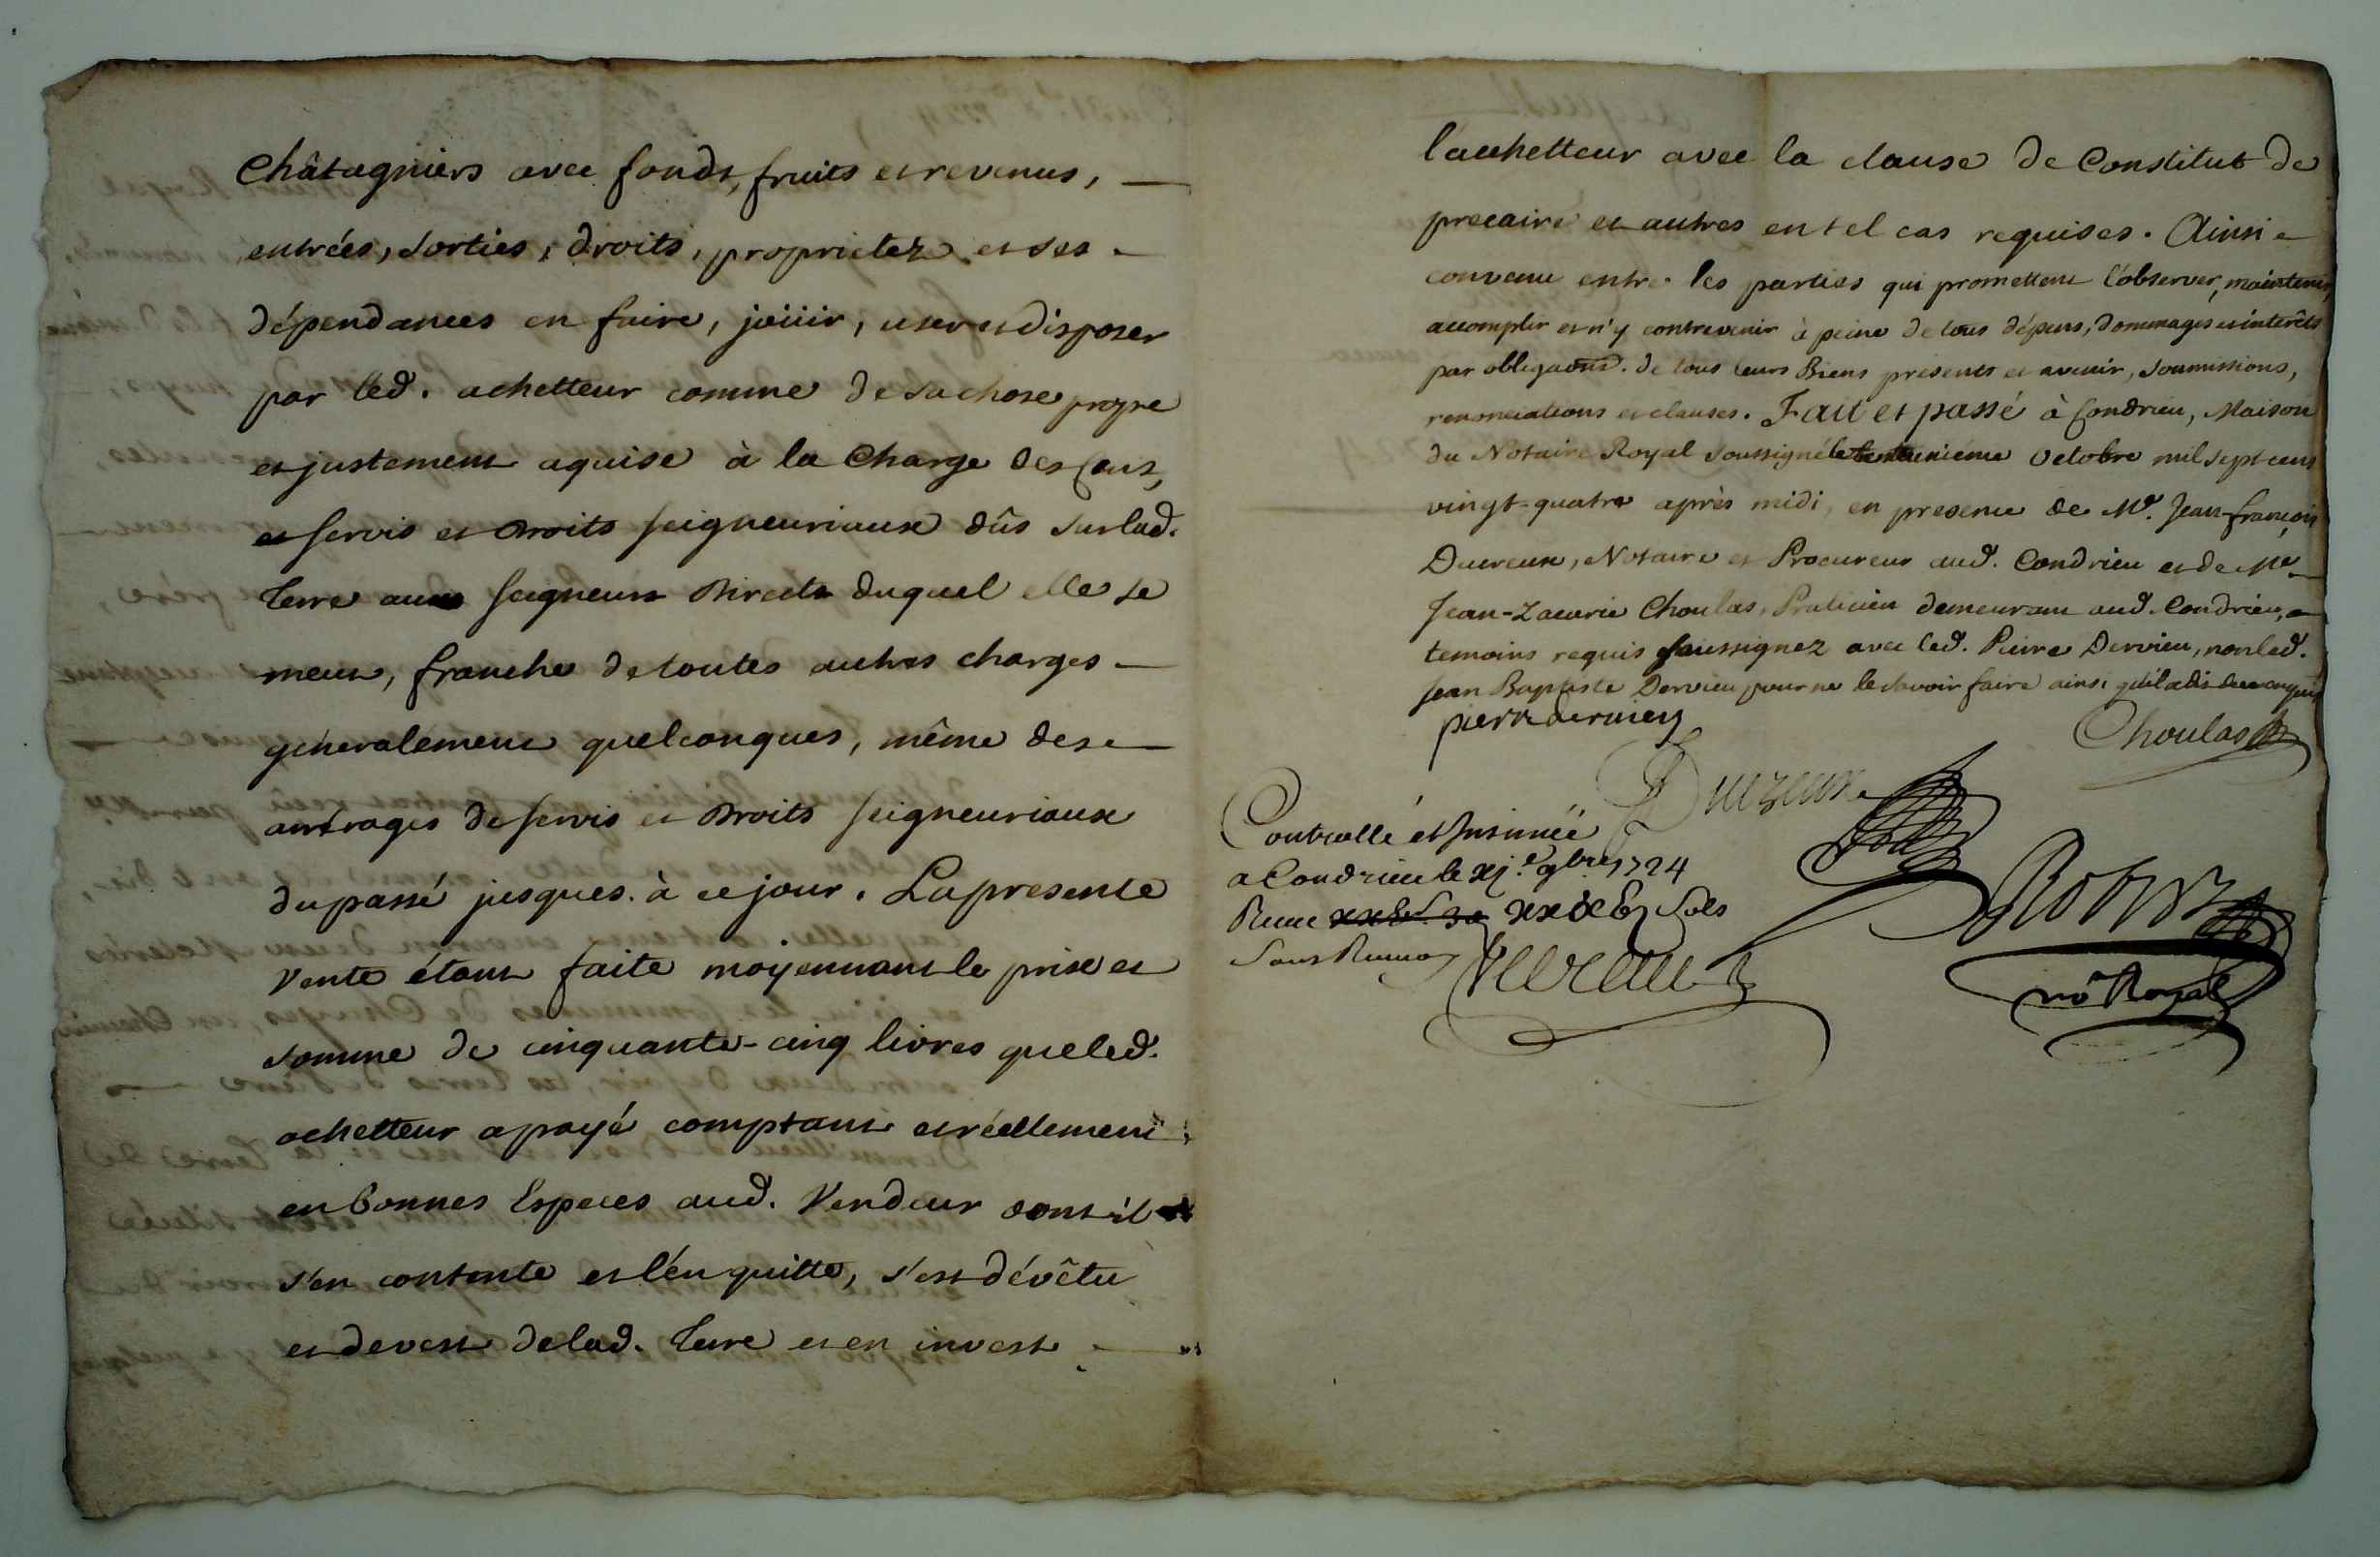 Châtagniers avec fonds, fruits et revenus,
entrées, sorties, droits, proprietez et ses
dépendances en faire, joüir, user et disposer
par led. achetteur comme de sa chose propre
et justement aquise à la Charge des Cens,
et servis et Droits seigneuriaux dûs sur lad.
Terre aux seigneurs Directs duquel elle se
meut, franche de toutes autres charges
generalement quelconques, même des
arrérages de servis et Droits seigneuriaux
du passé jusques à ce jour. La presente
Vente étant faite moyennant le prix et
somme de cinquante-cinq livres que led.
achetteur a payé comptant et réellement
en bonnes Especes aud. Vendeur dont il
s'en contente et l'en quitte, s'est dévêtu
et devest de lad. Terre et en invest
l'achetteur avec la clause de Constitut de
precaire et autres en tel cas requises. Ainsi
convenu entre les parties qui promettent l'observer, maintenir,
accomplir et n'y contrevenir à peine de tous dépens, dommages et interêts
par obligaons. de tous leurs Biens presents et avenir, soumissions,
renonciations et clauses. Fait et passé à Condrieu, Maison
du Notaire Royal soussigné le trente unième Octobre mil sept cens
vingt-quatre après midi, en presence de Me. Jean-françois
Ducreux, Notaire et Procureur aud. Condrieu et de Me
Jean-Zacarie Choulas, Praticien demeurant aud. Condrieu,
temoins requis soussignez avec led. Pierre Dervieu, non led.
Jean Baptiste Dervieu pour ne le savoir faire ainsi qu'il a dit de ce enquis
pierre dervieu
Choulas
Ducreux
Controllé et Insinué
a Condrieu le xje. 9bre 1724
Receu Sols
no Royal